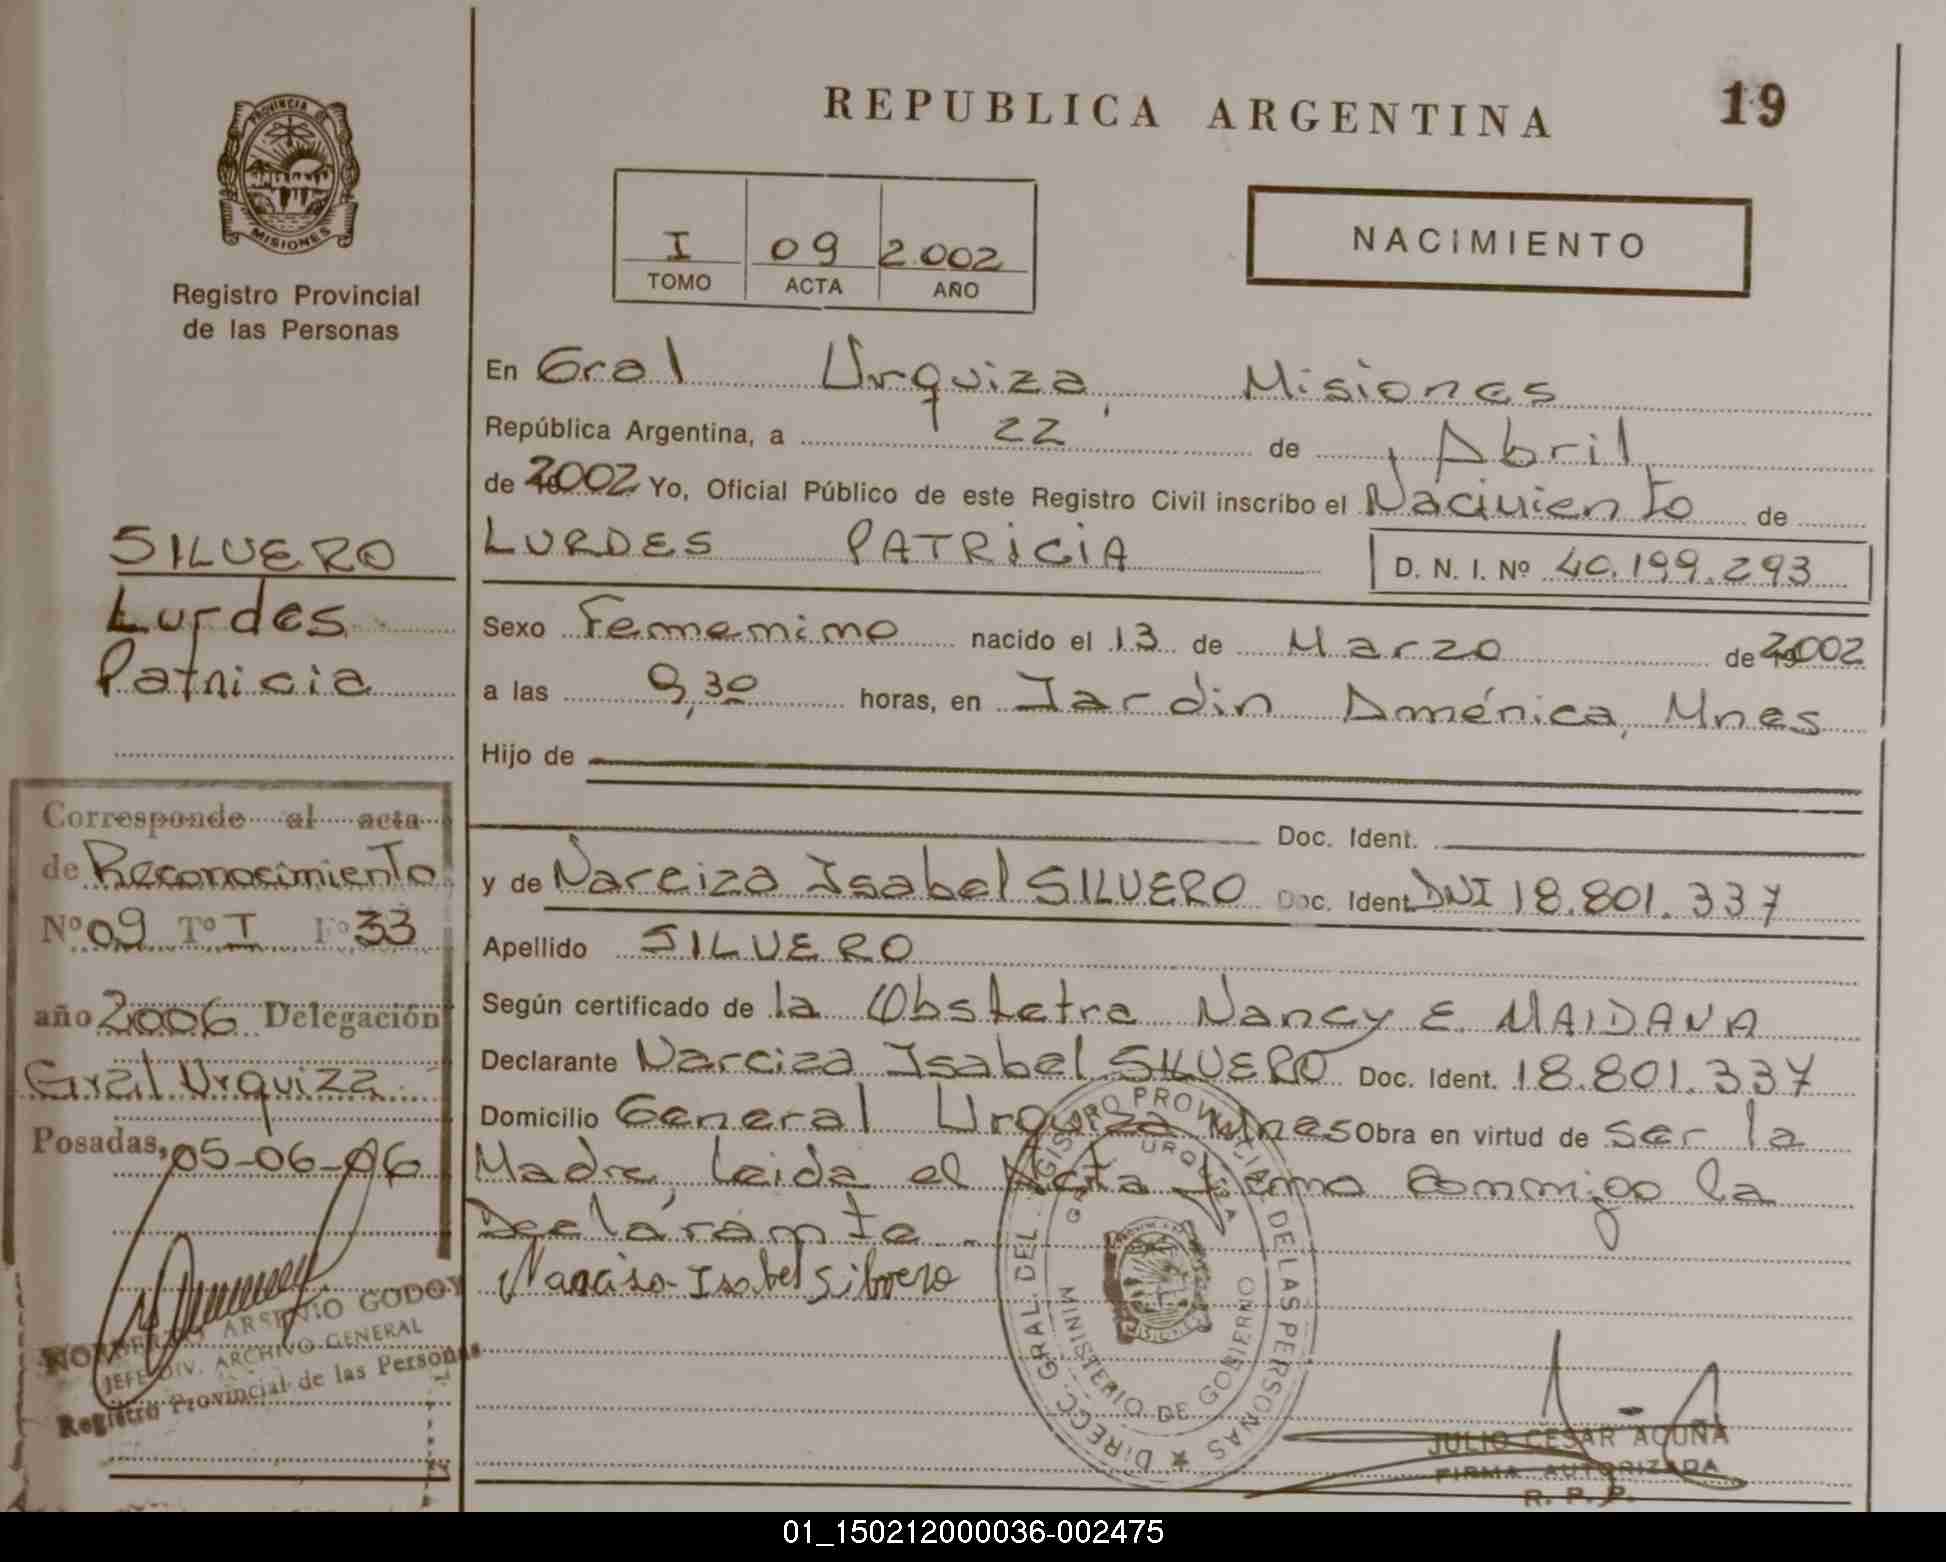 REPUBLICA ARGENTINA
19
PROVINCIA DE
MISIONES
Registro Provincial
de las Personas
I 09 2.002
TOMO ACTA AÑO
NACIMIENTO
En Gral Urquiza, Misiones
República Argentina, a 22 de Abril
de 2002 Yo, Oficial Público de este Registro Civil inscribo el Nacimiento de
LURDES PATRICIA D. N. I. Nº 40.199.293
Sexo Femenino nacido el 13 de Marzo de 2002
a las 9,30 horas, en Jardin América, Mnes
Hijo de
Doc. Ident.
y de Narciza Isabel SILVERO Doc. Ident. DNI 18.801.337
Apellido SILVERO
Según certificado de la Obstetra Nancy E. MAIDANA
Declarante Narciza Isabel SILVERO Doc. Ident. 18.801.337
Domicilio General Urquiza Mnes Obra en virtud de ser la
Madre, Leida el Acta firma conmigo la
Declarante.
Narcisa Isabel Silvero
SILVERO
Lurdes
Patricia
Corresponde al acta
de Reconocimiento
Nº 09 Tº I Fº 33
año 2006 Delegación
Gral Urquiza
Posadas, 05-06-06
NORBERTO ARSENIO GODOY
JEFE DIV. ARCHIVO GENERAL
Registro Provincial de las Personas
DIRECC. GRAL. DEL REGISTRO PROVINCIAL DE LAS PERSONAS
MINISTERIO DE GOBIERNO
GRAL. URQUIZA
JULIO CESAR ACUÑA
FIRMA AUTORIZADA
R. P. P.
01_150212000036-002475